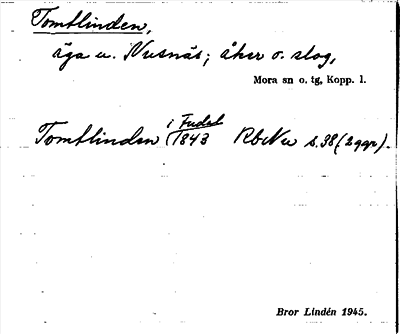 Tomtlinden,
äga u. Nusnäs; åker o. slog,
Mora sn o. tg, Kopp. l.
Tomtlinden i 1843 RbNu s. 38 (2 ggr).
Bror Lindén 1945.